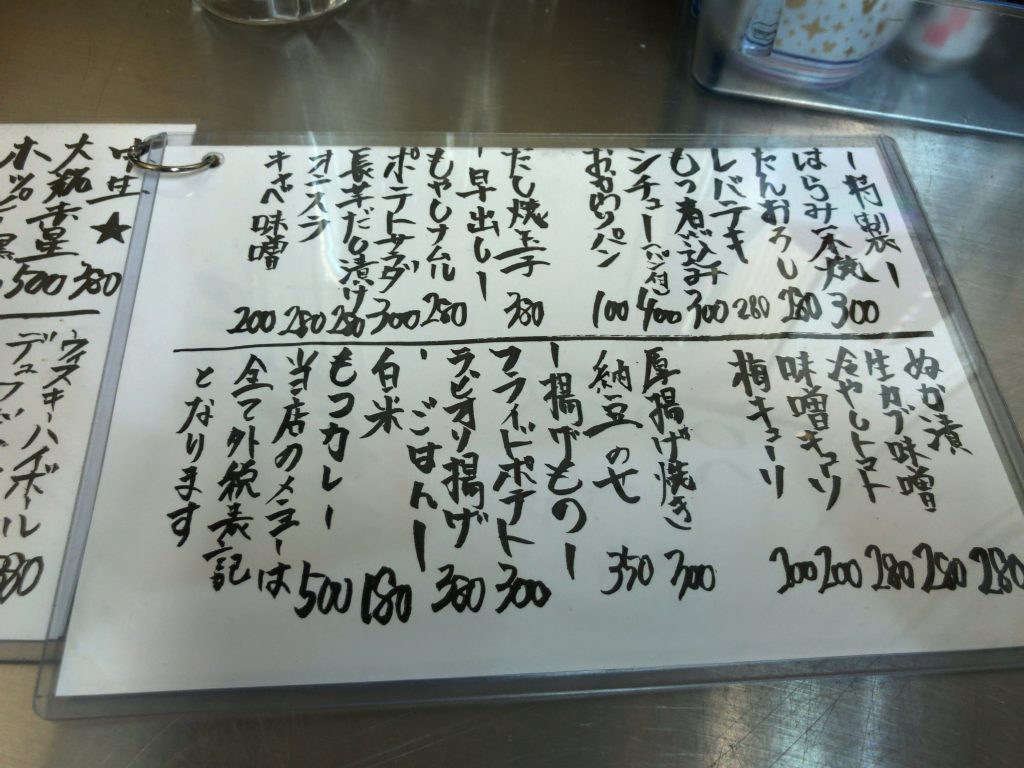 ー特製ー
はらみ一本焼 300
たんおろし 280
レバテキ 280
もつ煮込み 300
シチュー(パン付) 400
おかわりパン 100
だし焼玉子 380
ー早出しー
もやしナムル 280
ポテトサラダ 300
長芋だし漬け 280
オニスラ 280
キャベ味噌 200
ぬか漬 280
生カブ味噌 280
冷やしトマト 280
味噌キューリ 200
梅キューリ 200
厚揚げ焼き 300
納豆の 350
ー揚げものー
フライドポテト 300
ラビオリ揚げ 380
ーごはんー
白米 180
もつカレー 500
当店のメニューは
全て外税表記
となります
中生★ 380
大瓶赤星 500
ウィスキーハイボール